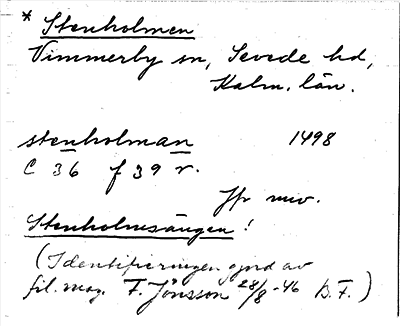 * Stenholmen
Vimmerby sn, Sevede hd,
Kalm. län.
stenholman 1498
C 36 f 39 r.
Jfr nuv.
Stenholmsängen!
(Identifieringen gjord av
fil. mag. F. Jönsson 28/8 -46 B.F.)